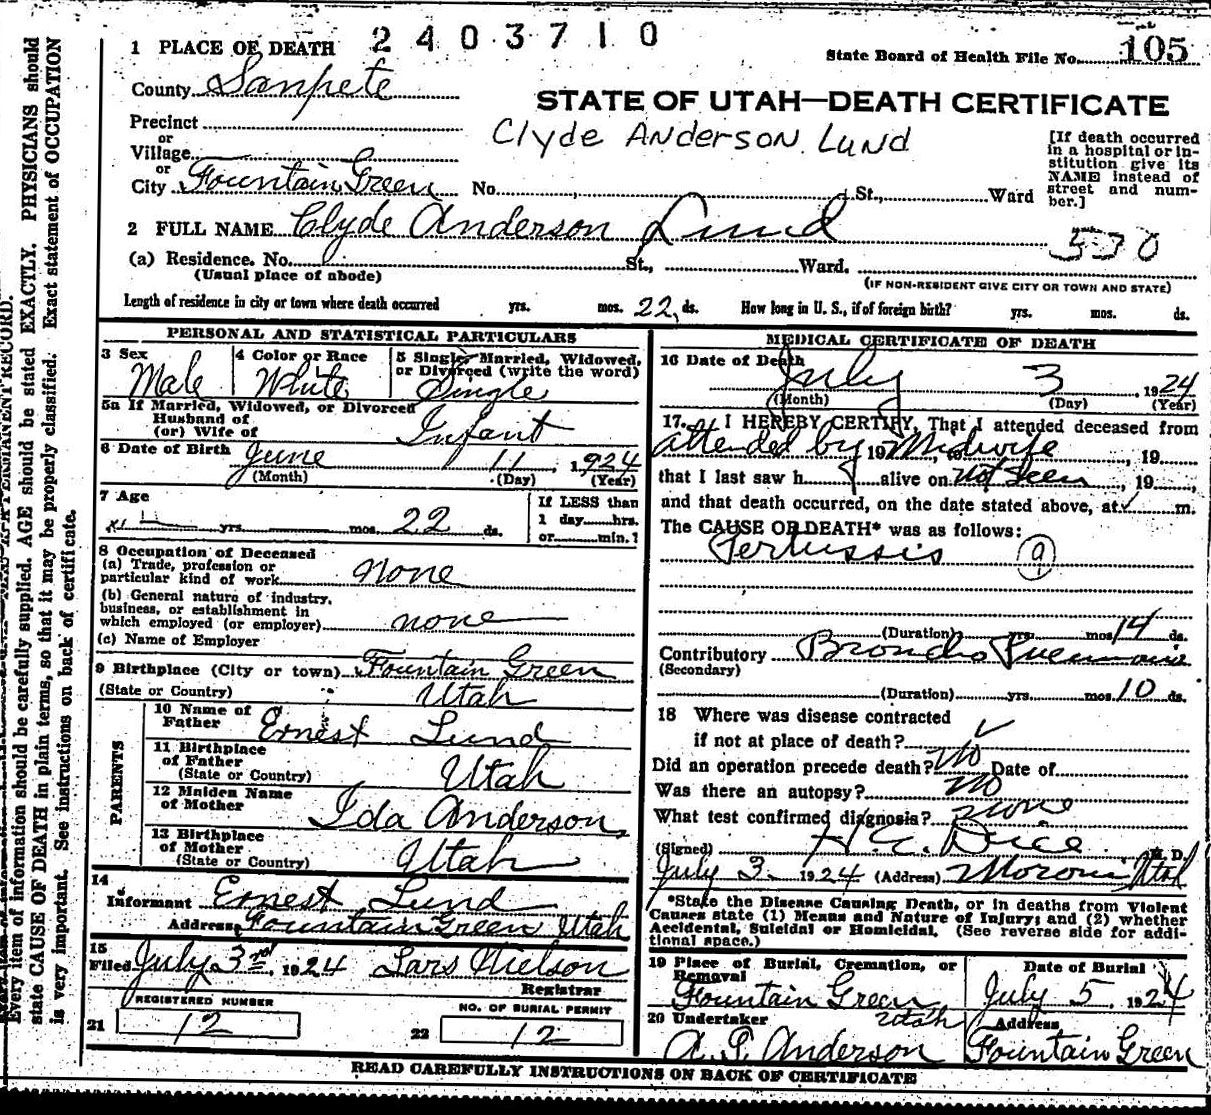 2403710
1 PLACE OF DEATH
State Board of Health File No. 105
County Sanpete
STATE OF UTAH—DEATH CERTIFICATE
Precinct
Clyde Anderson Lund
or
Village
or
City Fountain Green No. St., Ward
[If death occurred
in a hospital or in-
stitution give its
NAME instead of
street and num-
ber.]
2 FULL NAME Clyde Anderson Lund
530
(a) Residence. No. St., Ward.
(Usual place of abode)
(IF NON-RESIDENT GIVE CITY OR TOWN AND STATE)
Length of residence in city or town where death occurred yrs. mos. 22 ds. How long in U. S., if of foreign birth? yrs. mos. ds.
PERSONAL AND STATISTICAL PARTICULARS
3 Sex
Male
4 Color or Race
White
5 Single, Married, Widowed,
or Divorced (write the word)
Single
5a If Married, Widowed, or Divorced
Husband of
(or) Wife of
Infant
6 Date of Birth June 11, 1924
(Month) (Day) (Year)
7 Age
yrs. mos. 22 ds.
If LESS than
1 day hrs.
or min.?
8 Occupation of Deceased
(a) Trade, profession or
particular kind of work none
(b) General nature of industry,
business, or establishment in
which employed (or employer) none
(c) Name of Employer
9 Birthplace (City or town) Fountain Green
(State or Country) Utah
PARENTS
10 Name of
Father Ernest Lund
11 Birthplace
of Father
(State or Country) Utah
12 Maiden Name
of Mother Ida Anderson
13 Birthplace
of Mother
(State or Country) Utah
14
Informant Ernest Lund
Address Fountain Green Utah
15
Filed July 3rd, 1924 Lars Nielson
Registrar
REGISTERED NUMBER
21 12
NO. OF BURIAL PERMIT
22 12
MEDICAL CERTIFICATE OF DEATH
16 Date of Death
July 3, 1924
(Month) (Day) (Year)
17. I HEREBY CERTIFY, That I attended deceased from
attended by 19 Midwife, 19
that I last saw h alive on not seen, 19
and that death occurred, on the date stated above, at m.
The CAUSE OF DEATH* was as follows:
Pertussis 9
(Duration) yrs. mos. 14 ds.
Contributory Broncho Pneumonia
(Secondary)
(Duration) yrs. mos. 10 ds.
18 Where was disease contracted
if not at place of death?
Did an operation precede death? No Date of
Was there an autopsy? No
What test confirmed diagnosis? none
(Signed) H. E. M. D.
July 3 1924 (Address) Moroni Utah
*State the Disease Causing Death, or in deaths from Violent
Causes state (1) Means and Nature of Injury; and (2) whether
Accidental, Suicidal or Homicidal. (See reverse side for addi-
tional space.)
19 Place of Burial, Cremation, or
Removal
Fountain Green
Utah
Date of Burial
July 5 1924
20 Undertaker
Anderson
Address
Fountain Green
READ CAREFULLY INSTRUCTIONS ON BACK OF CERTIFICATE
Every item of information should be carefully supplied. AGE should be stated EXACTLY. PHYSICIANS should
state CAUSE OF DEATH in plain terms, so that it may be properly classified. Exact statement of OCCUPATION
is very important. See instructions on back of certificate.